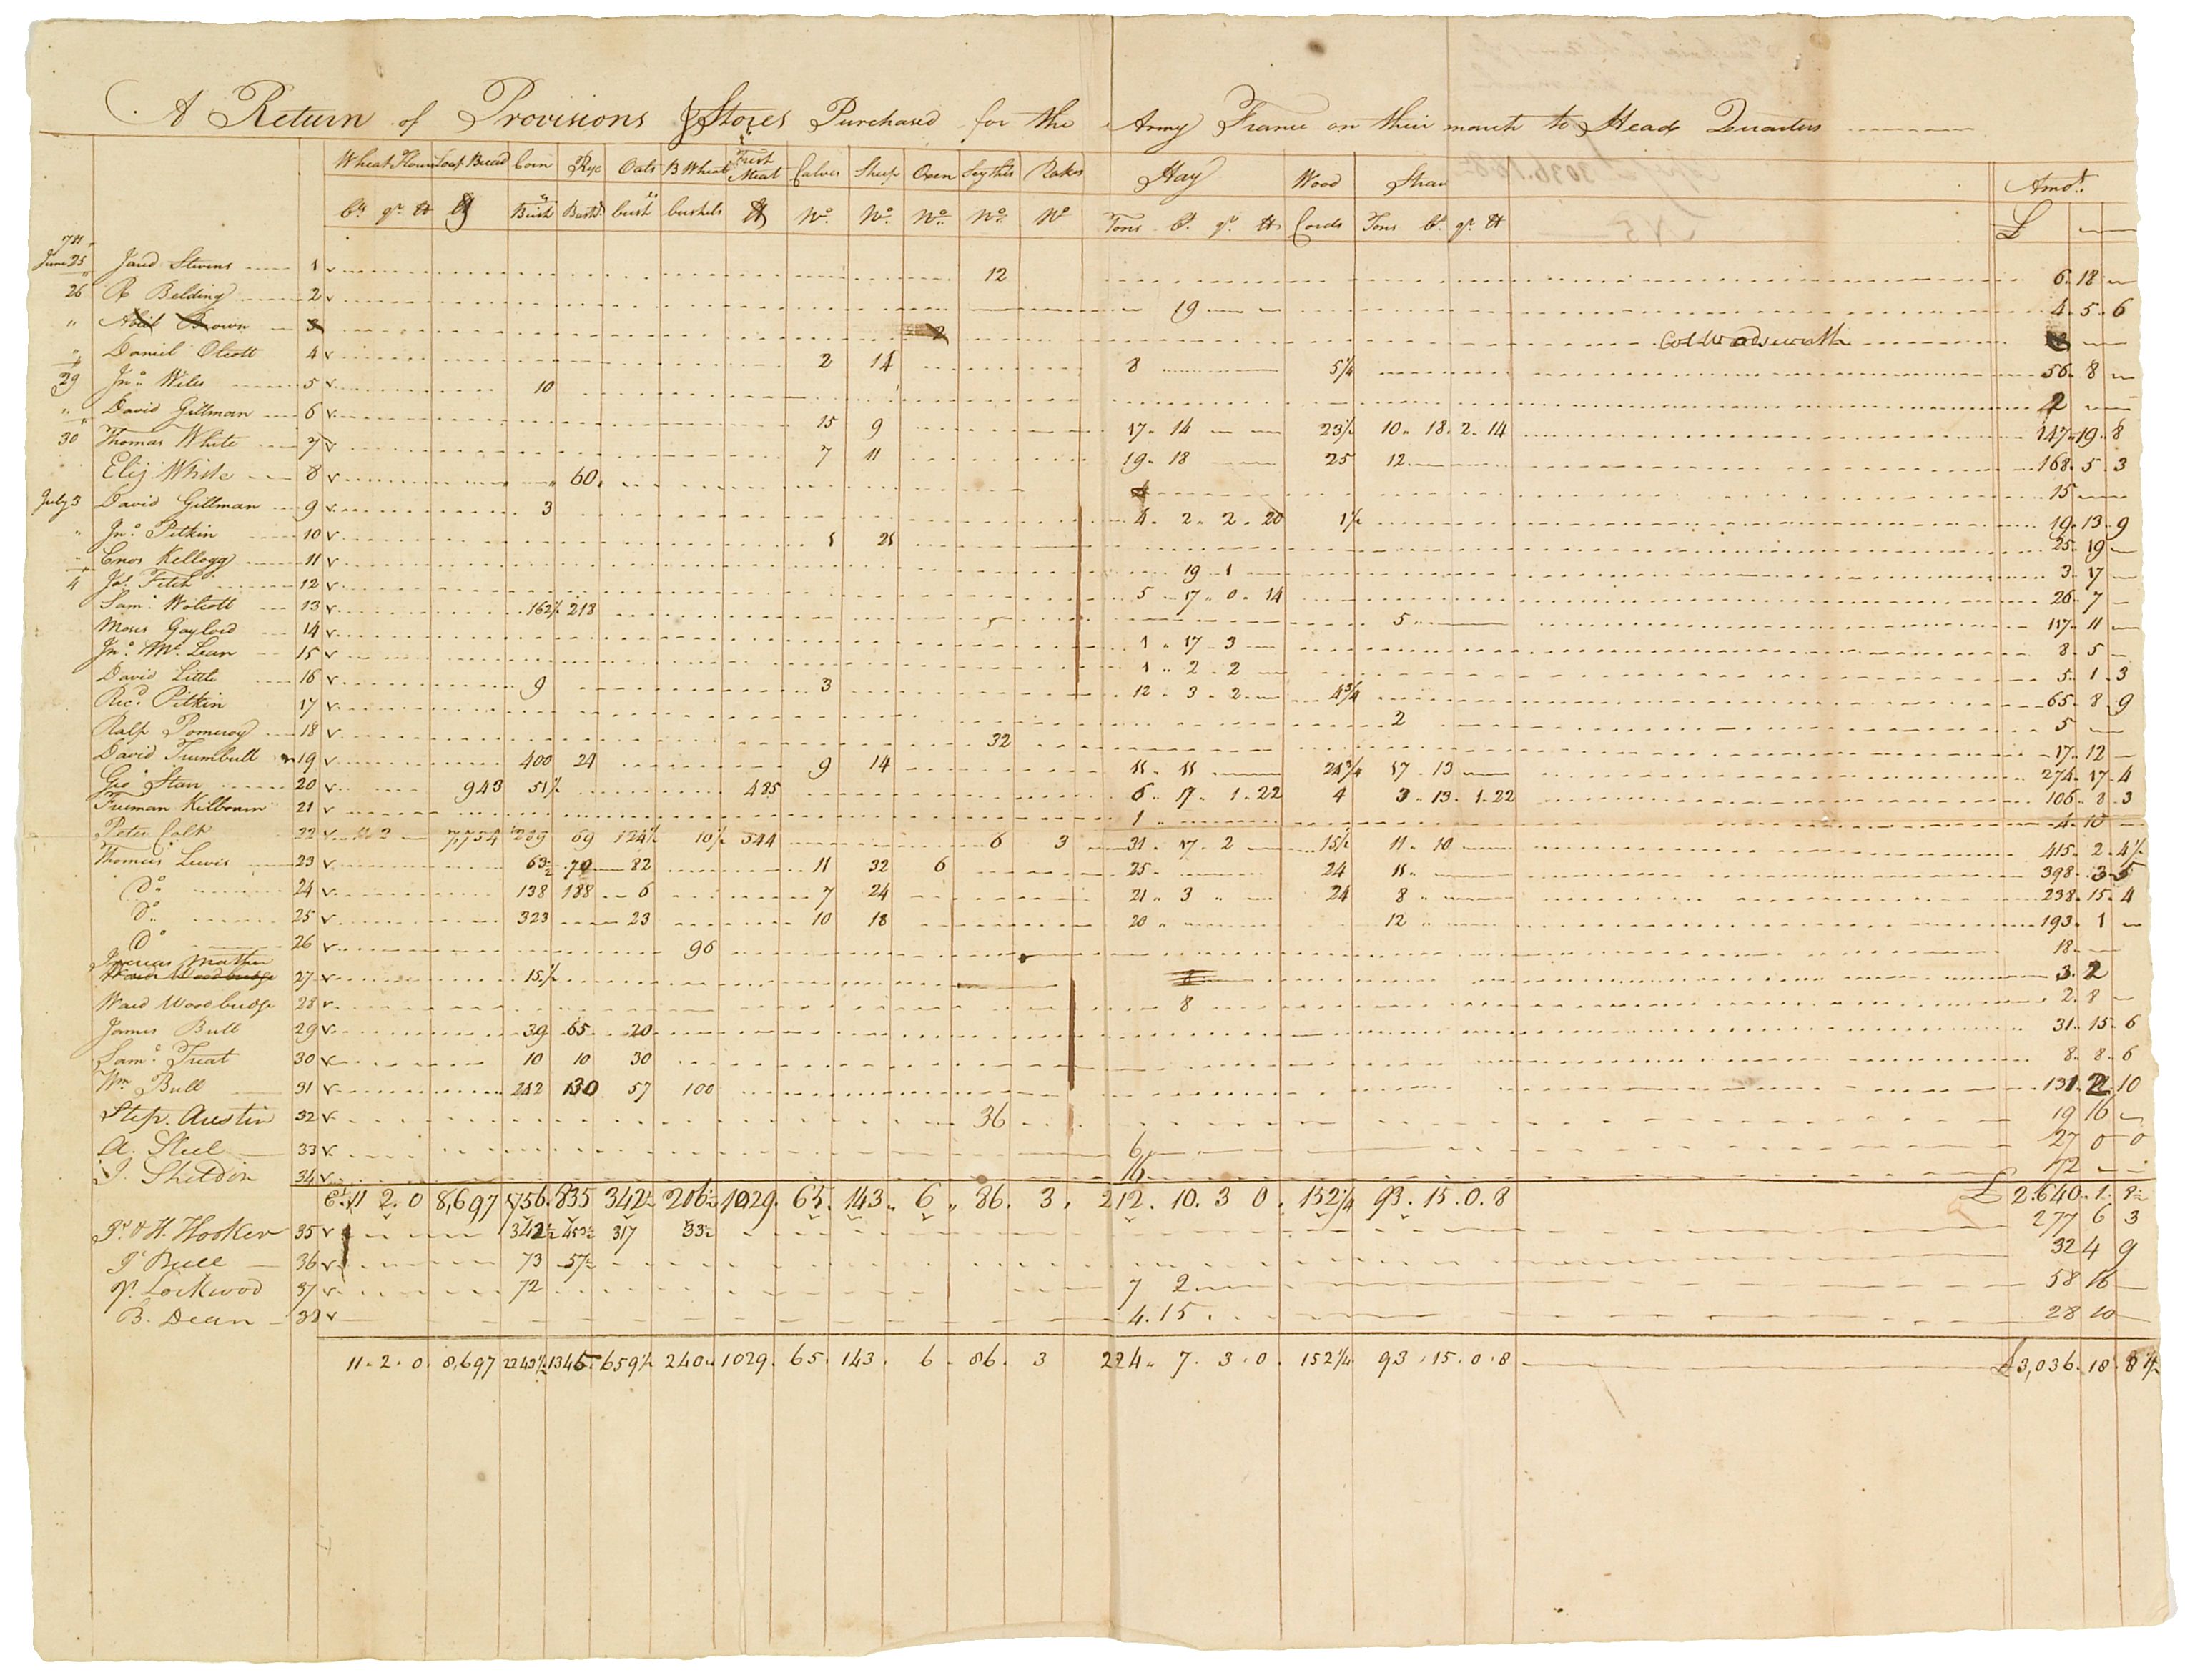 A Return of Provisions & Stores Purchased for the Army France on their march to Head Quarters
Wheat Flour Loaf Bread Corn Rye Oats B Wheat Fresh Meat Calves Sheep Oxen Scythes Rakes Hay Wood Straw Amot.
Ct qr lb lb Bush Bush bush bushels lb No. No. No. No. No Tons Ct. qr. lb Cords Tons Ct. qr. lb £
June 25 Jared Stevens 1 12 6 18
26 R Belding 2 19 4 5 6
" Abel Brown 3 2 Col Wadsworth
" Daniel Olcott 4 2 14 8 5 1/4 56 8
29 Jno. Wiles 5 10 2
" David Gillman 6 15 9 17 14 23 1/2 10 18 2 14 147 19 8
30 Thomas White 7 7 11 19 18 25 12 168 5 3
Elij White 8 60 15
July 3 David Gillman 9 3 4 2 2 20 1 1/2 19 13 9
" Jno. Pitkin 10 1 21 25 19
Enos Kellogg 11 19 1 3 17
4 Jos. Fitch 12 5 17 0 14 26 7
Sam. Wolcott 13 162 1/2 218 5 117 11
Moses Gaylord 14 1 17 3 8 5
Jno. Mc. Lean 15 1 2 2 5 1 3
David Little 16 9 3 12 3 2 4 3/4 65 8 9
Ricd. Pitkin 17 2 5
Ralp Pomeroy 18 32 17 12
David Trumbull 19 400 24 9 14 11 11 24 3/4 17 13 274 17 4
Geo Starr 20 943 51 1/2 485 6 17 1 22 4 3 13 1 22 106 8 3
Freeman Kilbourn 21 1 4 10
Peter Colt 22 11 2 7,754 209 69 124 1/2 10 1/2 544 6 3 31 17 2 15 1/2 11 10 415 2 4 1/2
Thomas Lewis 23 63 1/2 70 82 11 32 6 25 24 11 398 3 5
Do 24 138 188 6 7 24 21 3 24 8 238 15 4
Do 25 323 23 10 18 20 12 193 1
Do 26 96 18
Increas Mather
Ward Woodbridge 27 15 1/2 8 3 2
Ward Woodbridge 28 8 2 8
James Bull 29 39 65 20 31 15 6
Sam. Treat 30 10 10 30 8 8 6
Wm Bull 31 242 130 57 100 131 2 10
Step. Austin 32 36 19 16
A. Steel 33 6 27 0 0
J. Sheldon 34 16 72
Ct. 11 2 0 8,697 1756 835 342 1/2 206 1/2 1029 65 143 6 86 3 212 10 3 0 152 1/4 93 15 0 8 £ 2640 1 8 1/2
& H. Hooker 35 342 1/2 453 1/2 317 33 1/2 277 6 3
J Bull 36 73 57 1/2 32 4 9
Lockwood 37 72 7 2 58 16
B. Dean 38 4 15 28 10
11 2 0 8,697 2243 1/2 1346 659 1/2 240 1029 65 143 6 86 3 224 7 3 0 152 1/4 93 15 0 8 £3,036 18 8 1/2